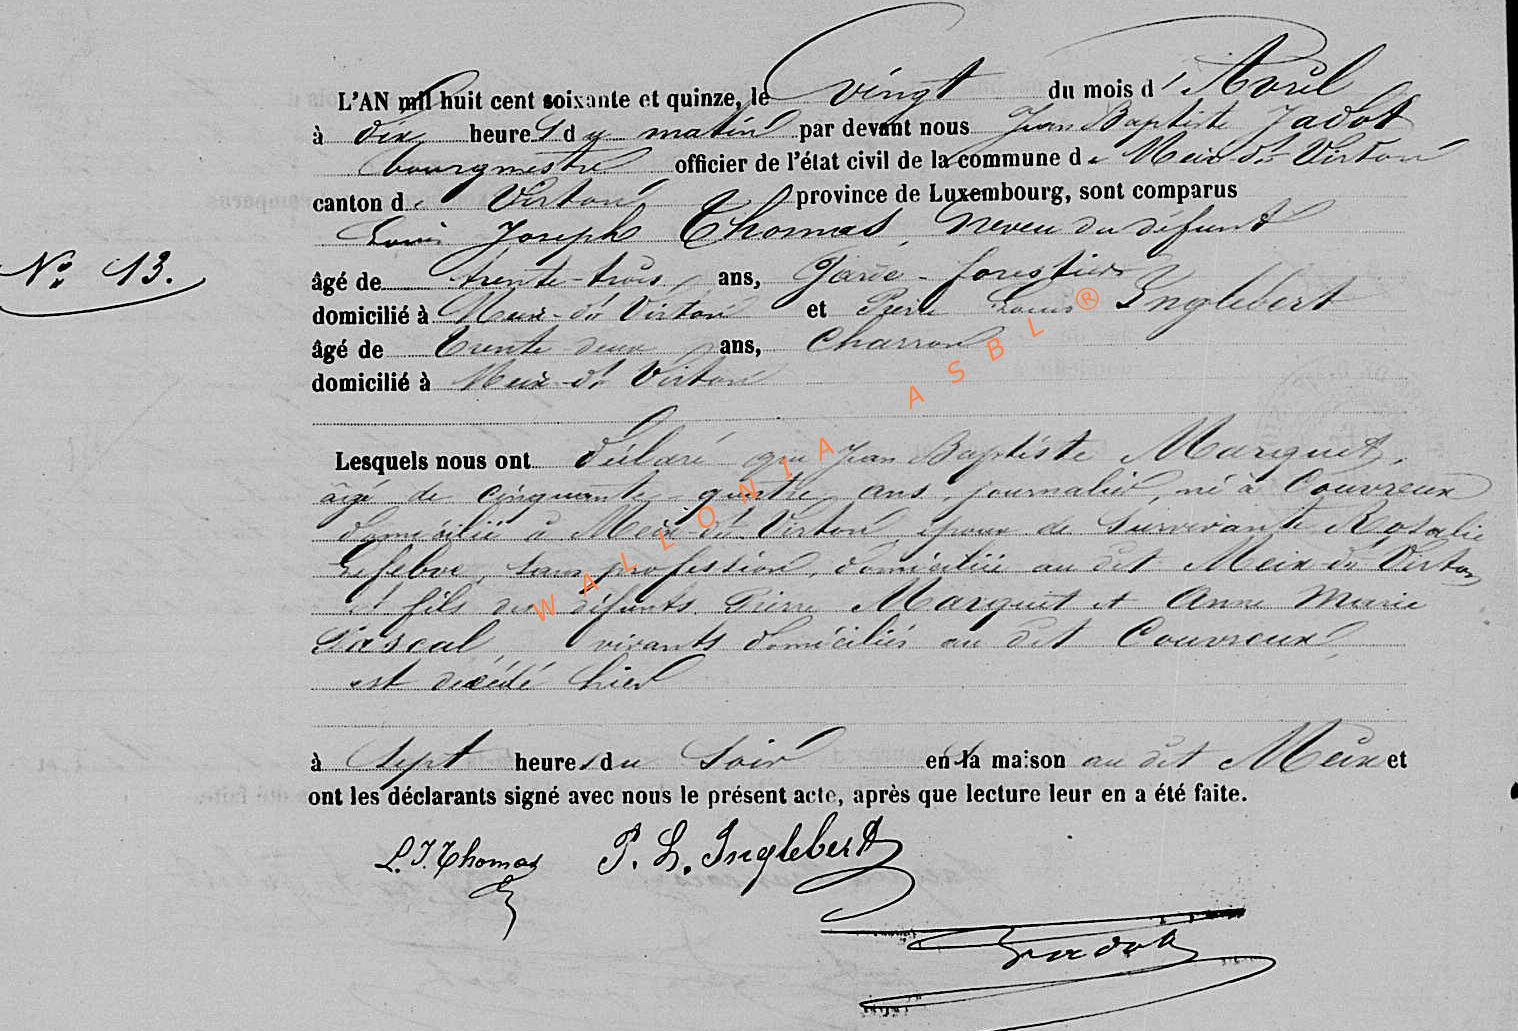 L'AN mil huit cent soixante et quinze, le vingt du mois d' Avril
à dix heures du matin par devant nous Jean Baptiste Jadot
bourgmestre officier de l'état civil de la commune de Meix-dt Virton
canton de Virton, province de Luxembourg, sont comparus
Louis Joseph Thomas, neveu du défunt
N° 13.
âgé de trente-trois ans, Garde-forestier
domicilié à Meix-dt Virton et Pierre Louis Inglebert
âgé de trente deux ans, Charron
domicilié à Meix-dt Virton
Lesquels nous ont déclaré que Jean Baptiste Marquet,
âgé de cinquante-quatre ans, journalier, né à Couvreux
domicilié à Meix-dt Virton, époux de survivante Rosalie
Lefebvre, sans profession, domiciliée au dit Meix dt Virton
et fils des défunts Pierre Marquet et Anne Marie
Pascal vivants domiciliés au dit Couvreux,
est décédé hier
à Sept heures du Soir en sa maison au dit Meix et
ont les déclarants signé avec nous le présent acte, après que lecture leur en a été faite.
L. J. Thomas P. L. Inglebert
Jadot
WALLONIA ASBL ®